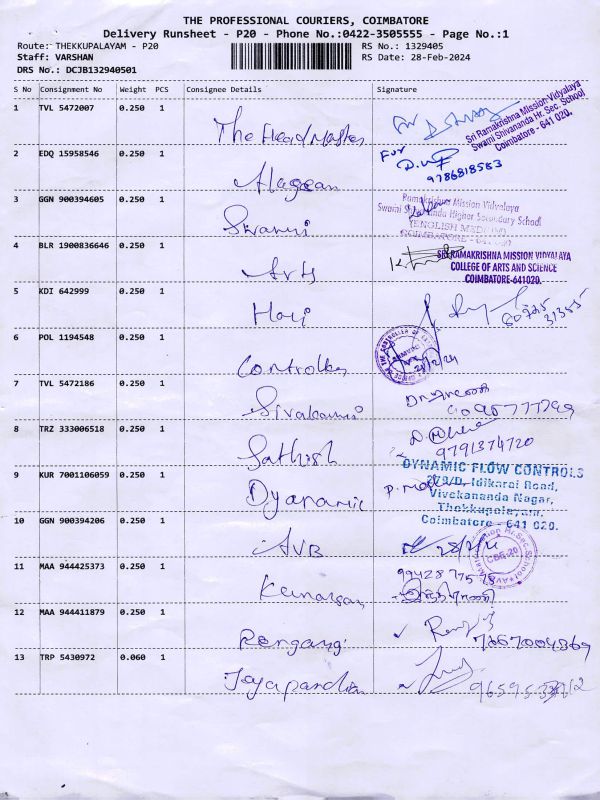 THE PROFESSIONAL COURIERS, COIMBATORE
Delivery Runsheet - P20 - Phone No.:0422-3505555 - Page No.:1
Route: THEKKUPALAYAM - P20 RS No.: 1329405
Staff: VARSHAN RS Date: 28-Feb-2024
DRS No.: DCJB132940501
S No Consignment No Weight PCS Consignee Details Signature
1 TVL 5472007 0.250 1 The Head Master For
Sri Ramakrishna Mission Vidyalaya
Swami Shivananda Hr. Sec. School
Coimbatore - 641 020.
2 EDQ 15958546 0.250 1 Alageean For
9786818583
3 GGN 900394605 0.250 1 Swami
Ramakrishna Mission Vidyalaya
Swami Shivananda Higher Secondary School
(ENGLISH MEDIUM)
COIMBATORE - 641 020
4 BLR 1900836646 0.250 1 Arts
SRI RAMAKRISHNA MISSION VIDYALAYA
COLLEGE OF ARTS AND SCIENCE
COIMBATORE-641020.
5 KDI 642999 0.250 1 Hari
6 POL 1194548 0.250 1 Controller
7 TVL 5472186 0.250 1 Sivakami
8 TRZ 333006518 0.250 1 Sathish
9791374720
9 KUR 7001106059 0.250 1 Dyanamic
DYNAMIC FLOW CONTROLS
Idikarai Road,
Vivekananda Nagar,
Thekkupalayam,
Coimbatore - 641 020.
10 GGN 900394206 0.250 1 AVB 28/2/24
CBE-20
11 MAA 944425373 0.250 1 Kumaran
12 MAA 944411879 0.250 1 Rengang
7867004369
13 TRP 5430972 0.060 1 Jayapandian